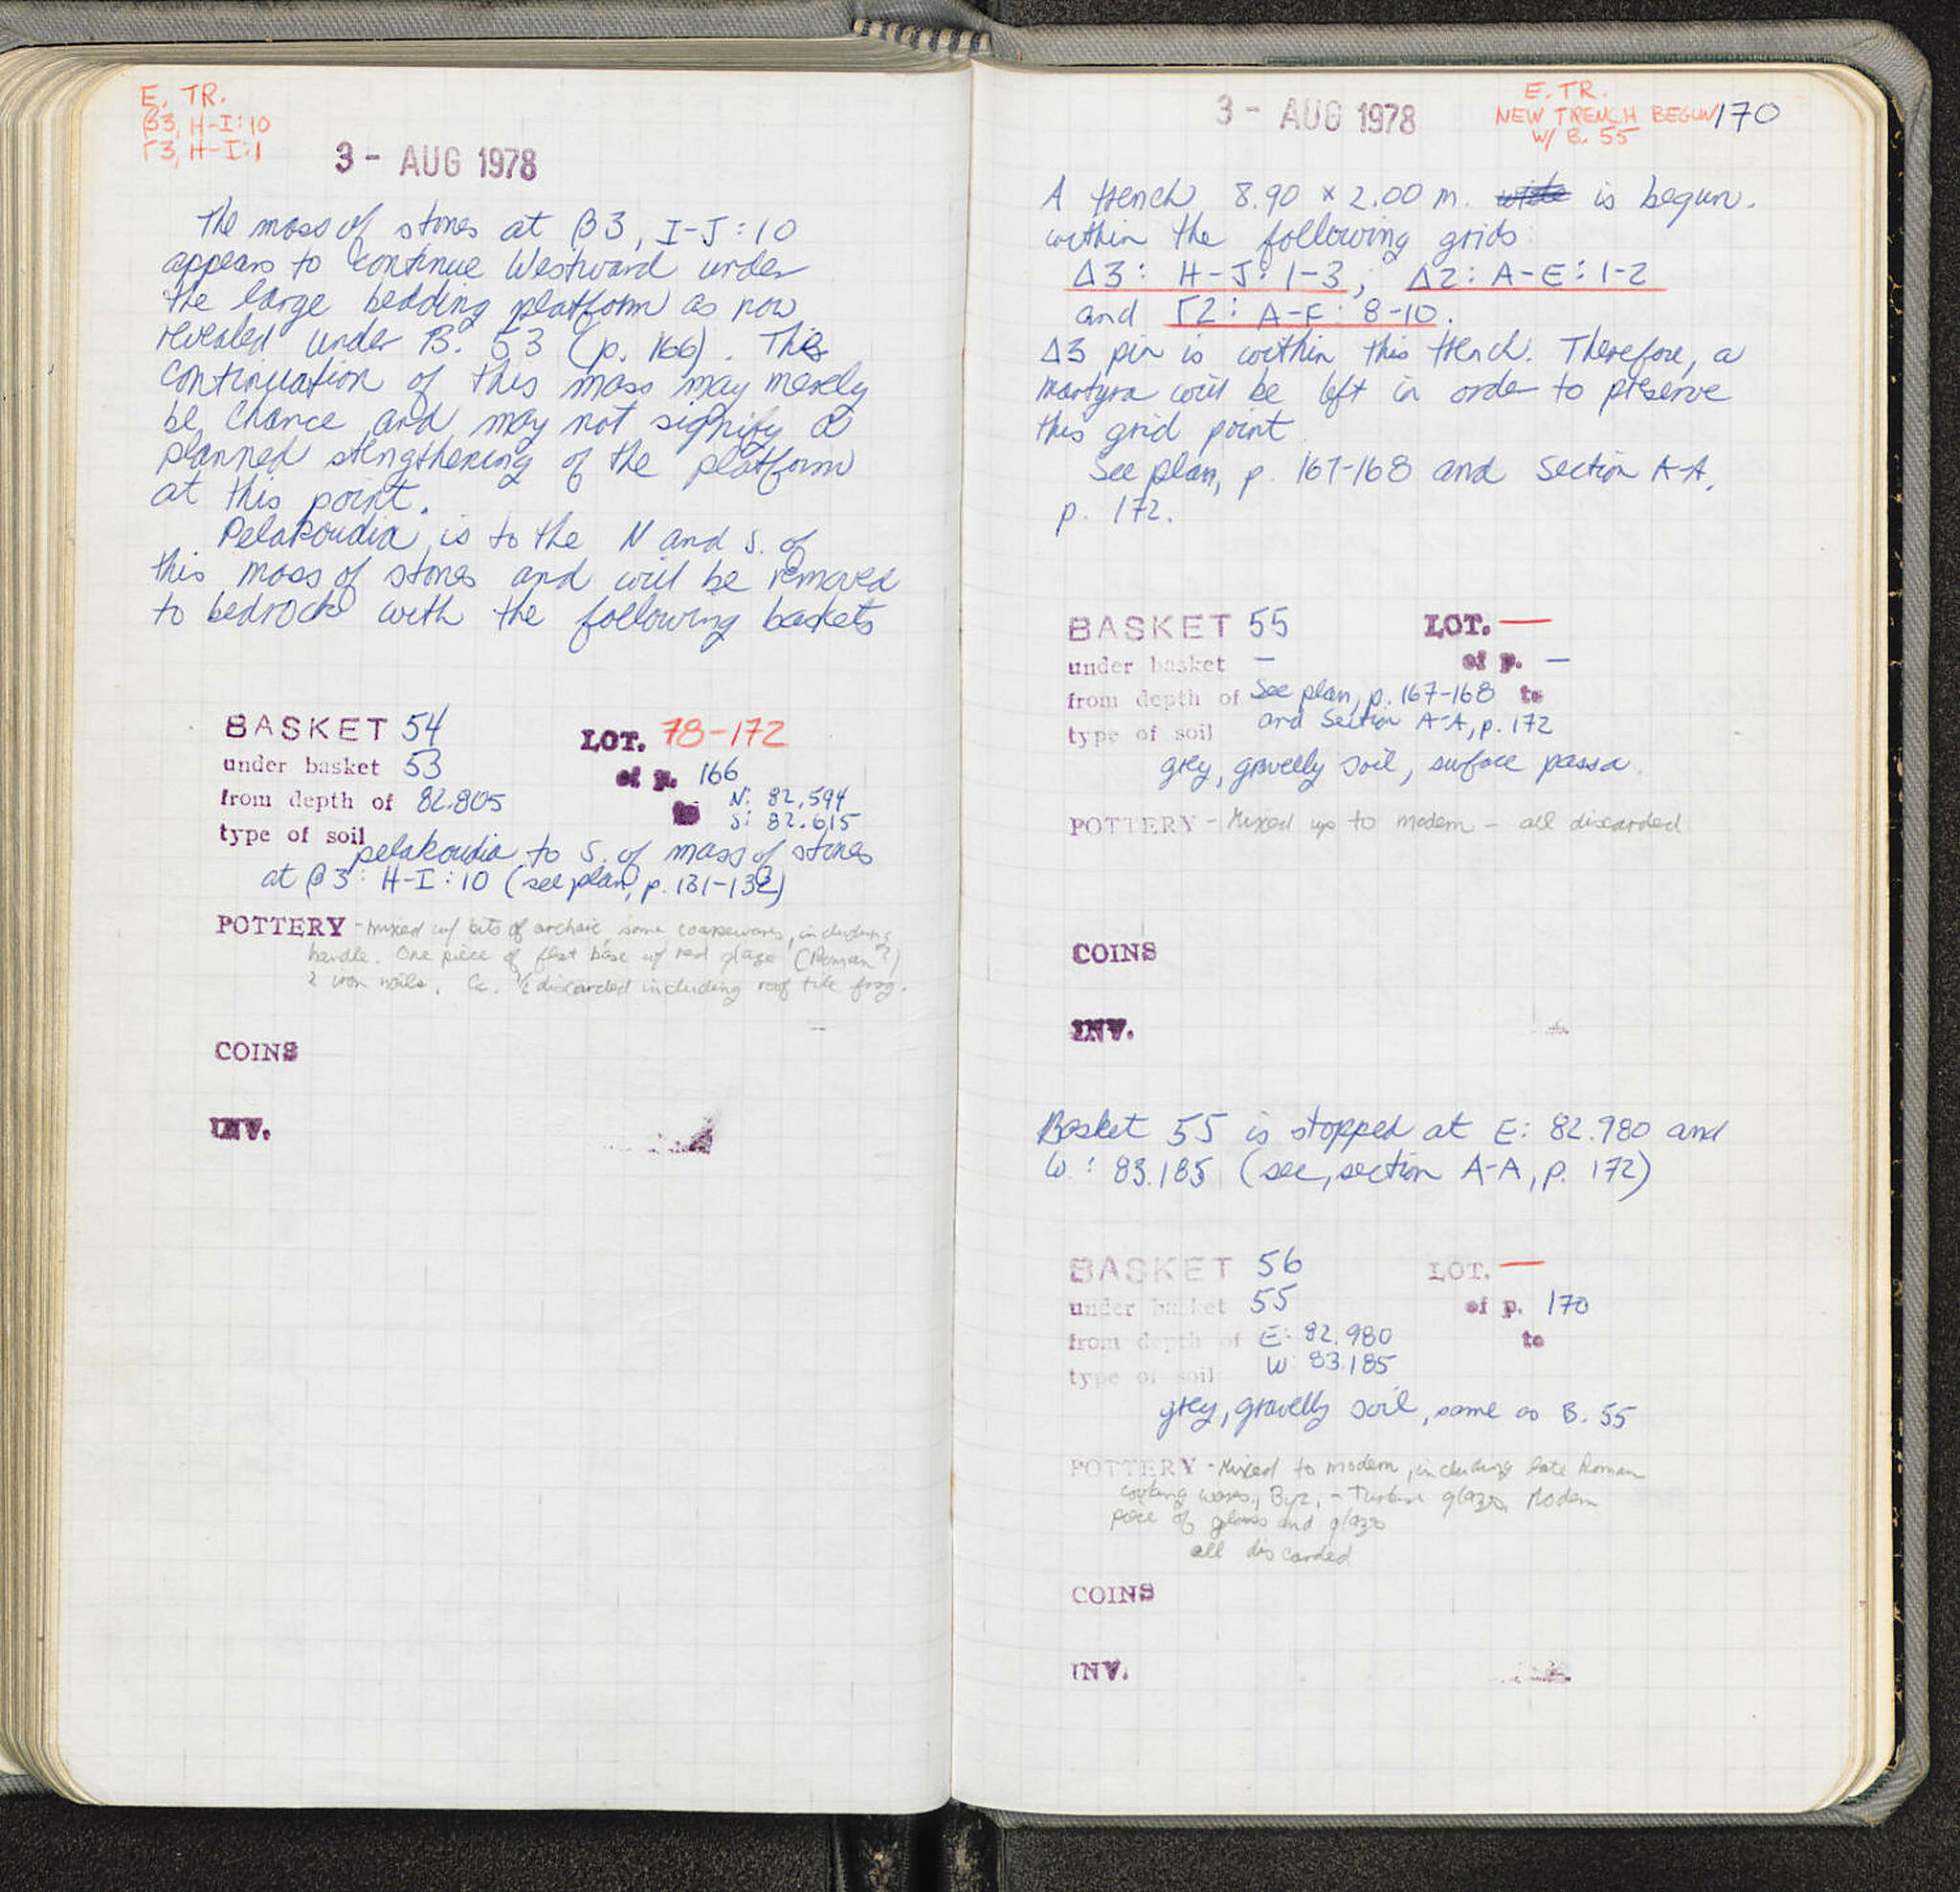 E. TR.
β3, H-I:10
Γ3, H-I:1
3 - AUG 1978
The mass of stones at β3, I-J:10
appears to continue Westward under
the large bedding platform as now
revealed under B. 53 (p. 166). This
continuation of this mass may merely
be chance and may not signify a
planned stengthening of the platform
at this point.
Pelakoudia is to the N and S. of
this mass of stones and will be removed
to bedrock with the following baskets
BASKET 54 LOT. 78-172
under basket 53 of p. 166
from depth of 82.805 to N: 82.594
S: 82.615
type of soil pelakoudia to S. of mass of stones
at β3: H-I:10 (see plan, p. 131-132)
POTTERY - Mixed w/ bits of archaic, some coarsewares, including
handle. One piece of flat base w/ red glaze (Roman?)
2 iron nails. Ca. ½ discarded including roof tile frag.
COINS
INV.
3 - AUG 1978
E. TR.
NEW TRENCH BEGUN 170
W/ B. 55
A trench 8.90 x 2.00 m. is begun.
within the following grids:
Δ3: H-J: 1-3; Δ2: A-E: 1-2
and Γ2: A-F: 8-10.
Δ3 pin is within this trench. Therefore, a
martyra will be left in order to preserve
this grid point.
See plan, p. 167-168 and Section A-A,
p. 172.
BASKET 55 LOT. —
under basket — of p. —
from depth of See plan, p. 167-168 to
and Section A-A, p. 172
type of soil
grey, gravelly soil, surface passa.
POTTERY - Mixed up to modern - all discarded
COINS
INV.
Basket 55 is stopped at E: 82.980 and
W: 83.185 (see, section A-A, p. 172)
BASKET 56 LOT. —
under basket 55 of p. 170
from depth of E: 82.980 to
W: 83.185
type of soil
grey, gravelly soil, same as B. 55
POTTERY - Mixed to modern, including late Roman
cooking wares, Byz. - Turkish glaze, Modern
piece of glass and glaze
all discarded
COINS
INV.